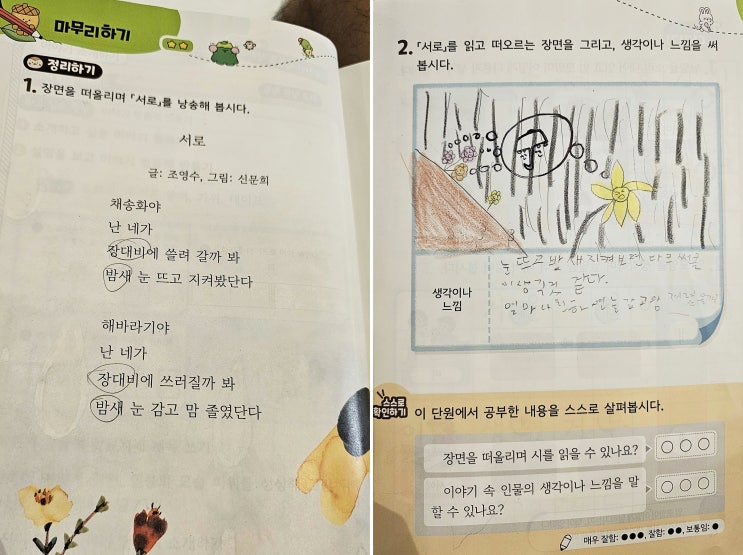 마무리하기
정리하기
1. 장면을 떠올리며 「서로」를 낭송해 봅시다.
서로
글: 조영수, 그림: 신문희
채송화야
난 네가
장대비에 쓸려 갈까 봐
밤새 눈 뜨고 지켜봤단다
해바라기야
난 네가
장대비에 쓰러질까 봐
밤새 눈 감고 맘 졸였단다
2. 「서로」를 읽고 떠오르는 장면을 그리고, 생각이나 느낌을 써
봅시다.
생각이나
느낌
눈 뜨고 밤 새 지켜보면
같다.
스스로
확인하기
이 단원에서 공부한 내용을 스스로 살펴봅시다.
장면을 떠올리며 시를 읽을 수 있나요?
이야기 속 인물의 생각이나 느낌을 말
할 수 있나요?
매우 잘함: ●●●, 잘함: ●●, 보통임: ●